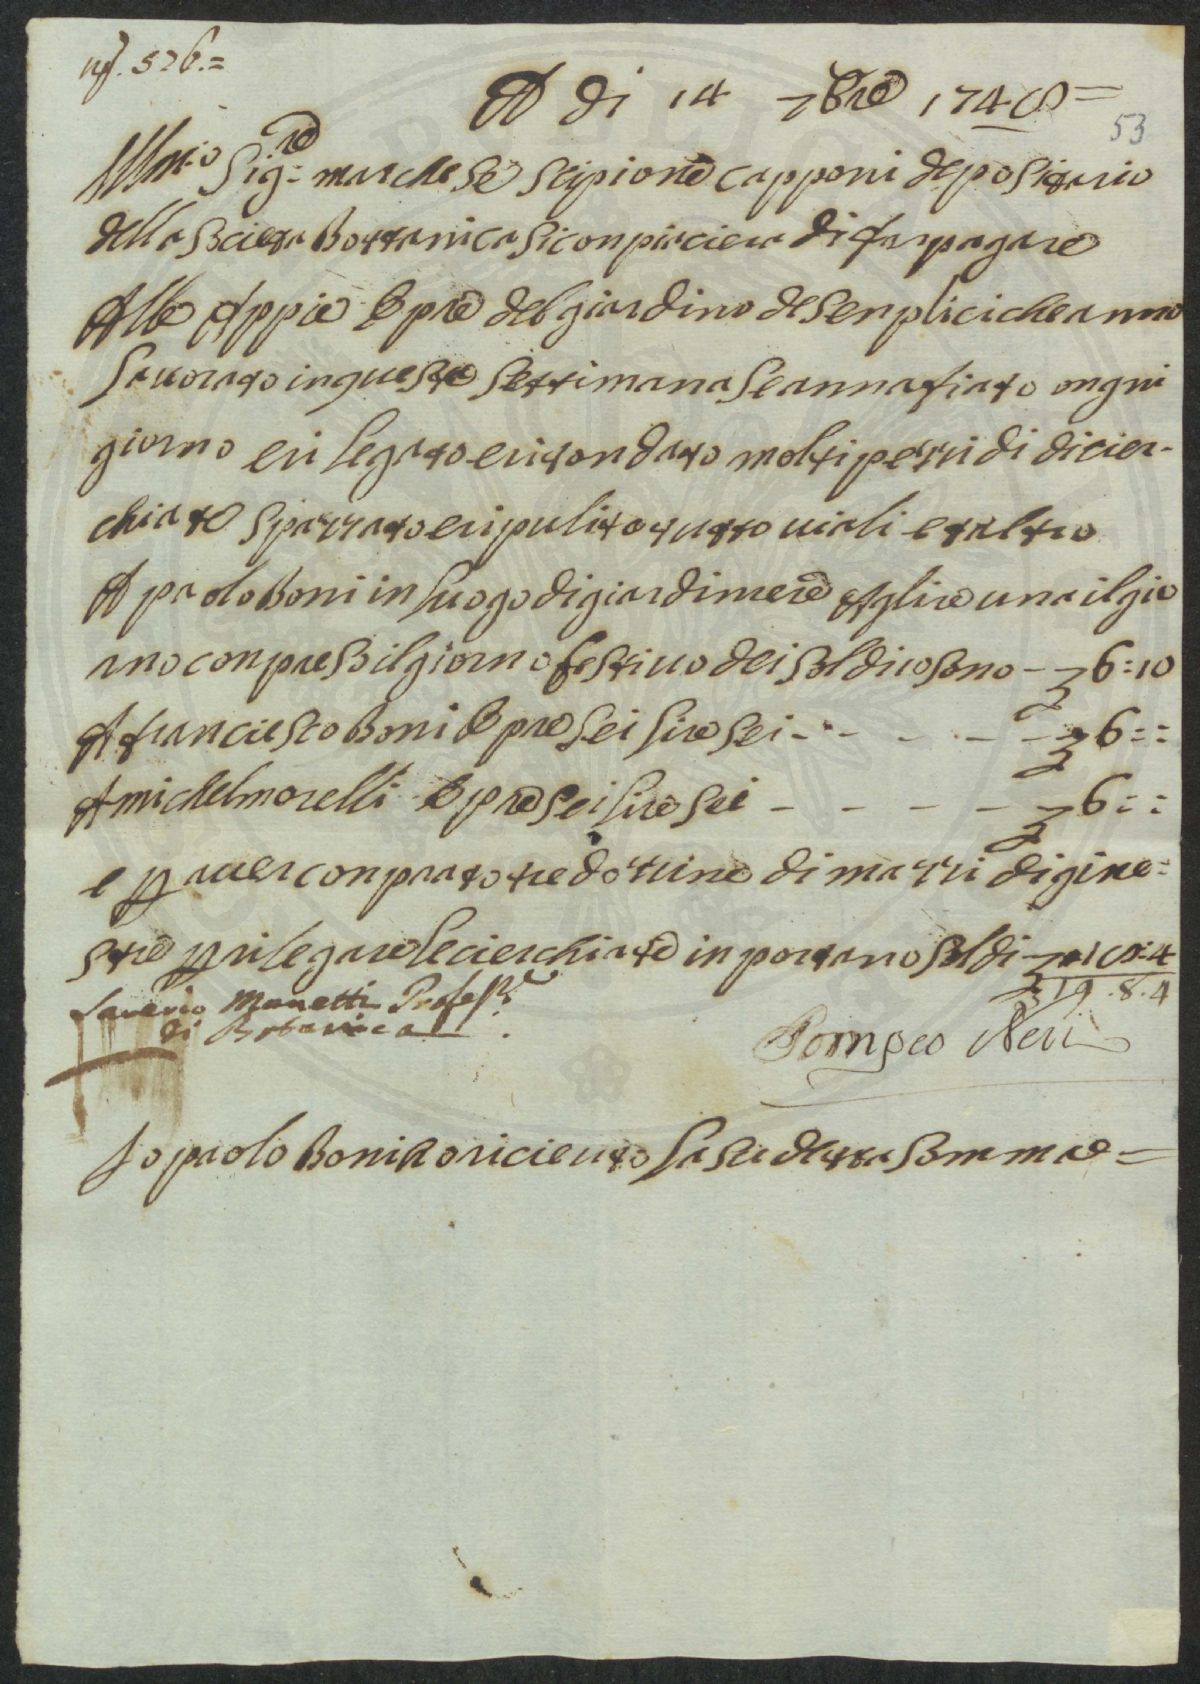 n.° 526.=
A di 14 7bre 1748=
53
Illmo Sigre marchese scipione capponi depositario
della societa Bottanica si conpiaciera di far pagare
Alle Appie Opre del giardino de senplici che anno
lavorato in queste settimana se annafiato ongni
giorno eri legato eritondato molti pezzi di di cier-
chiate spazzato eripulito tutto viali et altro
A paolo Boni in luogo di giardiniere A glire una il gio
rno conpreso il giorno festivo dei soldi 10 sono - £ 6:10
A franciesco Boni Opre sei lire sei - - - - - £ 6::
A michel morelli Opre sei lire sei - - - - £ 6::
e p aver conprato tre dozzine di mazzi di gine=
stre p rilegare le cierchiate in portano soldi £ -:18:4
£ 19.8.4
Saverio Manetti Profess.re
di Botanica
Pompeo Neri
Io paolo Boni o riciento la su detta somma e=